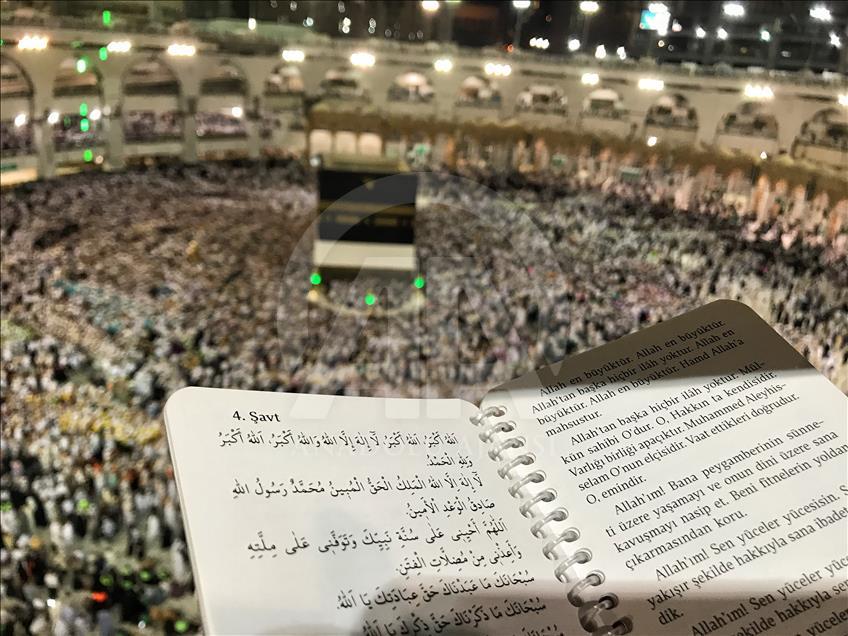 4. Şavt
اَللهُ اَكْبَرُ، اَللهُ اَكْبَرُ، لَآ اِلٰهَ اِلَّا اللهُ وَاللهُ اَكْبَرُ، اَللهُ اَكْبَرُ
وَلِلّٰهِ الْحَمْدُ.
لَآ اِلٰهَ اِلَّا اللهُ الْمَلِكُ الْحَقُّ الْمُبِينُ مُحَمَّدٌ رَسُولُ اللهِ
صَادِقُ الْوَعْدِ الْاَمِينُ.
اَللّٰهُمَّ اَحْيِنِى عَلٰى سُنَّةِ نَبِيِّكَ وَتَوَفَّنِى عَلٰى مِلَّتِهِ
وَاَعِذْنِى مِنْ مُضِلَّاتِ الْفِتَنِ.
سُبْحَانَكَ مَا عَبَدْنَاكَ حَقَّ عِبَادَتِكَ يَا اَللهُ.
سُبْحَانَكَ مَا ذَكَرْنَاكَ حَقَّ ذِكْرِكَ يَا اَللهُ.
Allah en büyüktür. Allah en büyüktür.
Allah'tan başka hiçbir ilâh yoktur. Allah en
büyüktür. Allah en büyüktür. Hamd Allah'a
mahsustur.
Allah'tan başka hiçbir ilâh yoktur. Mül-
kün sahibi O'dur. O, Hakkın 'ta kendisidir.
Varlığı birliği apaçıktır. Muhammed Aleyhis-
selam O'nun elçisidir. Vaat ettikleri doğrudur.
O, emindir.
Allah'ım! Bana peygamberinin sünne-
ti üzere yaşamayı ve onun dini üzere sana
kavuşmayı nasip et. Beni fitnelerin yoldan
çıkarmasından koru.
Allah'ım! Sen yüceler yücesisin. S
yakışır şekilde hakkıyla sana ibade
dik.
Allah'ım! Sen yüceler yüce
şekilde hakkıyla sana